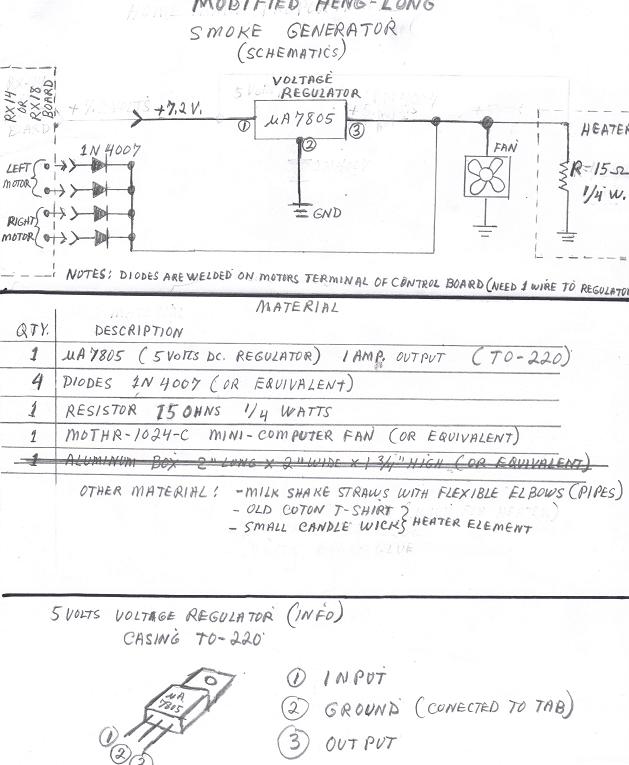 MODIFIED HENG-LONG
SMOKE GENERATOR
(SCHEMATICS)
RX14
OR
RX18
BOARD
+7.2 V.
VOLTAGE
REGULATOR
① µA7805 ③
②
GND
FAN
HEATER
R-15Ω
1/4 W.
1N 4007
LEFT
MOTOR
RIGHT
MOTOR
NOTES: DIODES ARE WELDED ON MOTORS TERMINAL OF CONTROL BOARD (NEED 1 WIRE TO REGULATOR
MATERIAL
QTY. DESCRIPTION
1 µA7805 (5 VOLTS DC. REGULATOR) 1 AMP. OUTPUT (TO-220)
4 DIODES 1N 4007 (OR EQUIVALENT)
1 RESISTOR 15 OHNS 1/4 WATTS
1 MOTHR-1024-C MINI-COMPUTER FAN (OR EQUIVALENT)
1 ALUMINUM BOX 2" LONG X 2" WIDE X 1 3/4" HIGH (OR EQUIVALENT)
OTHER MATERIAL: -MILK SHAKE STRAWS WITH FLEXIBLE ELBOWS (PIPES)
- OLD COTON T-SHIRT
- SMALL CANDLE WICK } HEATER ELEMENT
5 VOLTS VOLTAGE REGULATOR (INFO)
CASING TO-220
µA
7805
① INPUT
② GROUND (CONECTED TO TAB)
③ OUTPUT
①
②
③